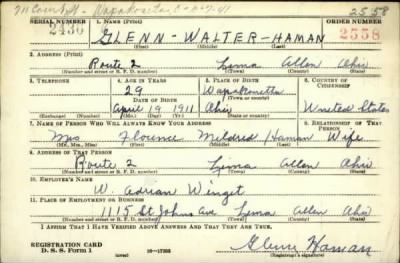 711 Court St. - Wapakoneta, O - 2-7-41 2558
SERIAL NUMBER 1. NAME (Print) ORDER NUMBER
2430 GLENN - WALTER - HAMAN 2558
(First) (Middle) (Last)
2. ADDRESS (Print)
Route 2 Lima Allen Ohio
(Number and street or R. F. D. number) (Town) (County) (State)
3. TELEPHONE 4. AGE IN YEARS 5. PLACE OF BIRTH 6. COUNTRY OF CITIZENSHIP
29 Wapakonetha
DATE OF BIRTH (Town or county)
April 19 1911 Ohio United States
(Exchange) (Number) (Mo.) (Day) (Yr.) (State or country)
7. NAME OF PERSON WHO WILL ALWAYS KNOW YOUR ADDRESS 8. RELATIONSHIP OF THAT PERSON
Mrs Florence Mildred Haman Wife
(Mr., Mrs., Miss) (First) (Middle) (Last)
9. ADDRESS OF THAT PERSON
Route 2 Lima Allen Ohio
(Number and street or R. F. D. number) (Town) (County) (State)
10. EMPLOYER'S NAME
W. Adrian Winget
11. PLACE OF EMPLOYMENT OR BUSINESS
1115 St Johns Ave Lima Allen Ohio
(Number and street or R. F. D. number) (Town) (County) (State)
I AFFIRM THAT I HAVE VERIFIED ABOVE ANSWERS AND THAT THEY ARE TRUE.
REGISTRATION CARD
D. S. S. Form 1 16-17105 Glenn Haman
(Registrant's signature)